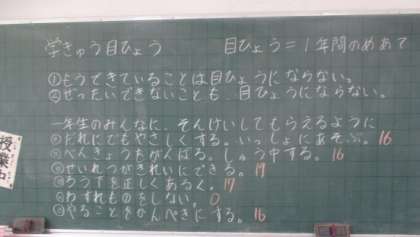 学きゅう目ひょう　　目ひょう＝1年間のめあて
①もうできていることは目ひょうにならない。
②ぜったいできないことも、目ひょうにならない。
一年生のみんなに、そんけいしてもらえるように
だれにでもやさしくする。いっしょにあそぶ。16
べんきょうをがんばる。しゅう中する。16
せいれつがきれいにできる。17
ろう下を正しくあるく。17
わすれものをしない。0
やることをかんぺきにする。16
授業